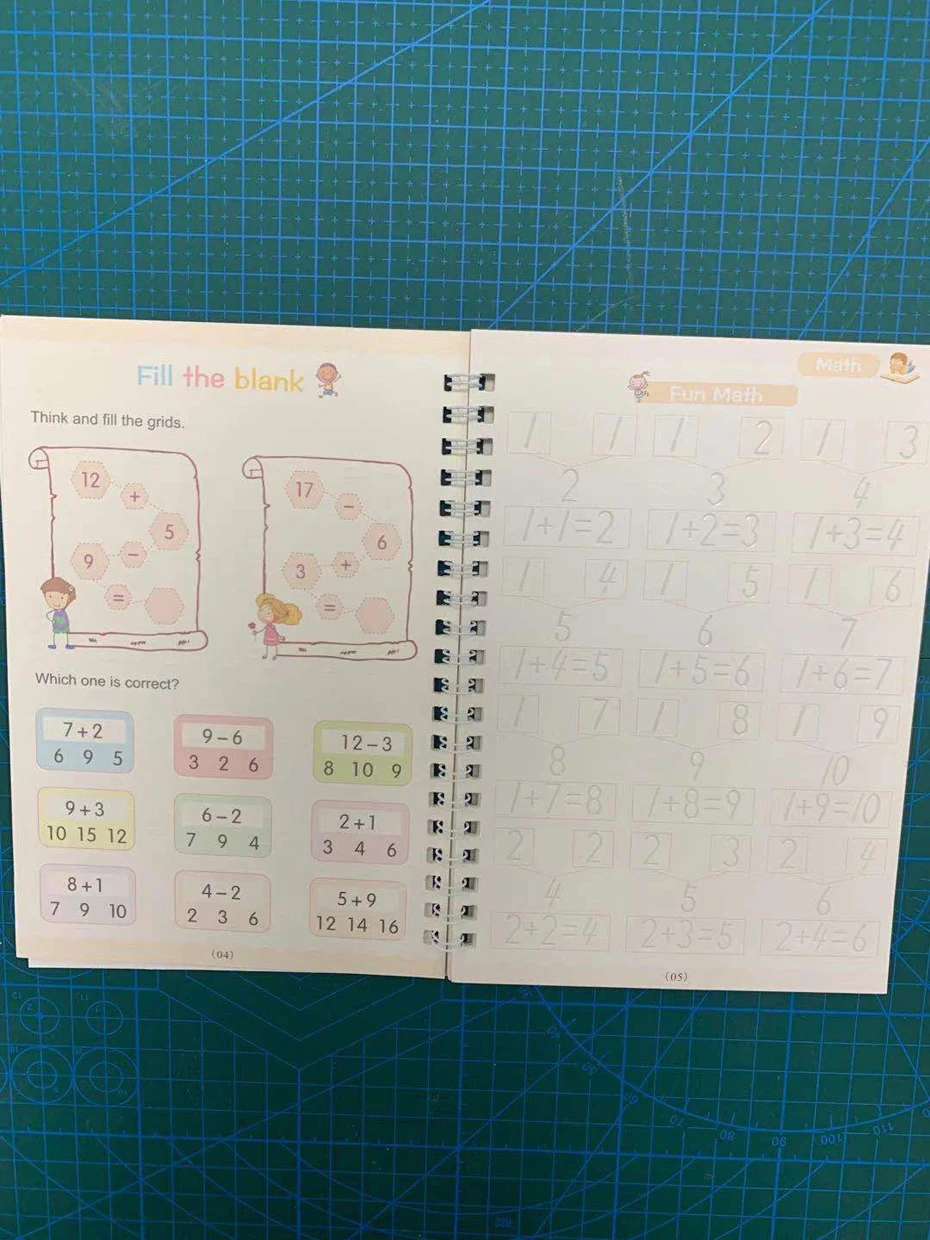 Fill the blank
Think and fill the grids.
12
+
5
9 -
=
17
-
6
3 +
=
Which one is correct?
7+2
6 9 5
9-6
3 2 6
12-3
8 10 9
9+3
10 15 12
6-2
7 9 4
2+1
3 4 6
8+1
7 9 10
4-2
2 3 6
5+9
12 14 16
(04)
Math
Fun Math
1 1 1 2 1 3
2 3 4
1+1=2 1+2=3 1+3=4
1 4 1 5 1 6
5 6 7
1+4=5 1+5=6 1+6=7
1 7 1 8 1 9
8 9 10
1+7=8 1+8=9 1+9=10
2 2 2 3 2 4
4 5 6
2+2=4 2+3=5 2+4=6
(05)